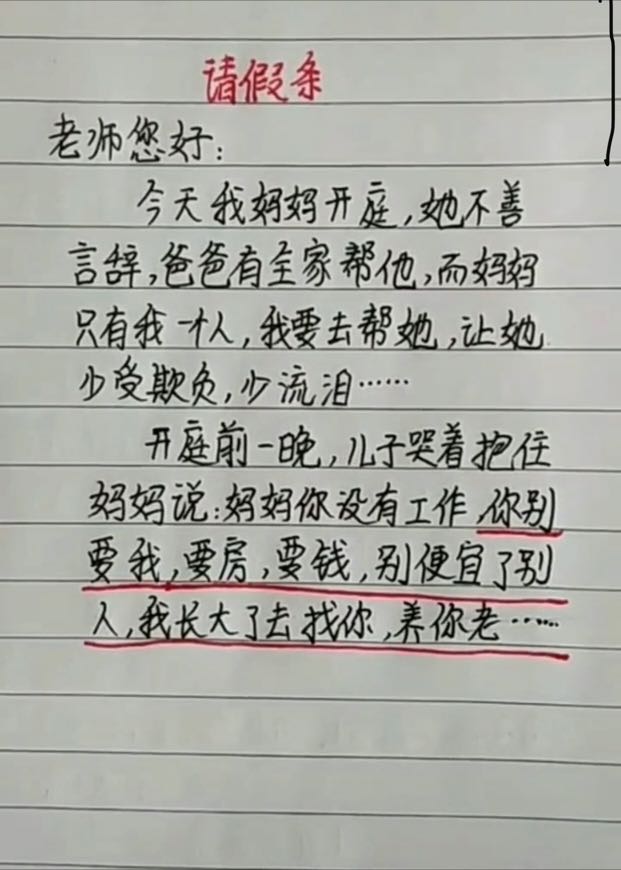 请假条
老师您好:
今天我妈妈开庭,她不善
言辞,爸爸有全家帮他,而妈妈
只有我一个人,我要去帮她,让她
少受欺负,少流泪……
开庭前一晚,儿子哭着抱住
妈妈说:妈妈你没有工作,你别
要我,要房,要钱,别便宜了别
人,我长大了去找你,养你老……